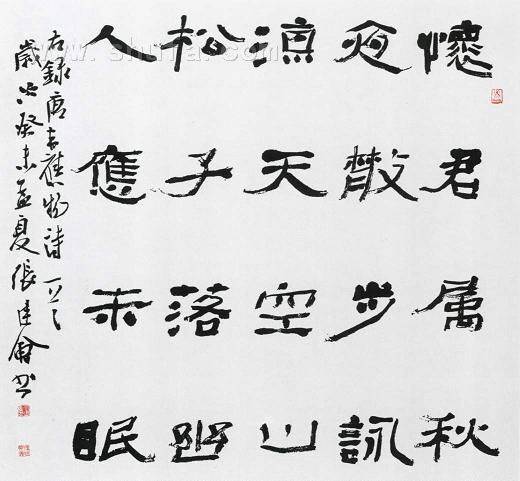 懷君属秋
夜散步詠
涼天空山
松子落幽
人應未眠
右録唐韋應物詩一首
歲次癸未孟夏張建會書